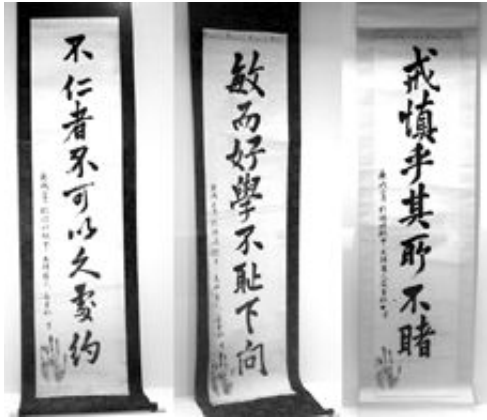 不仁者不可以久處約
敏而好學不耻下問
戒慎乎其所不睹